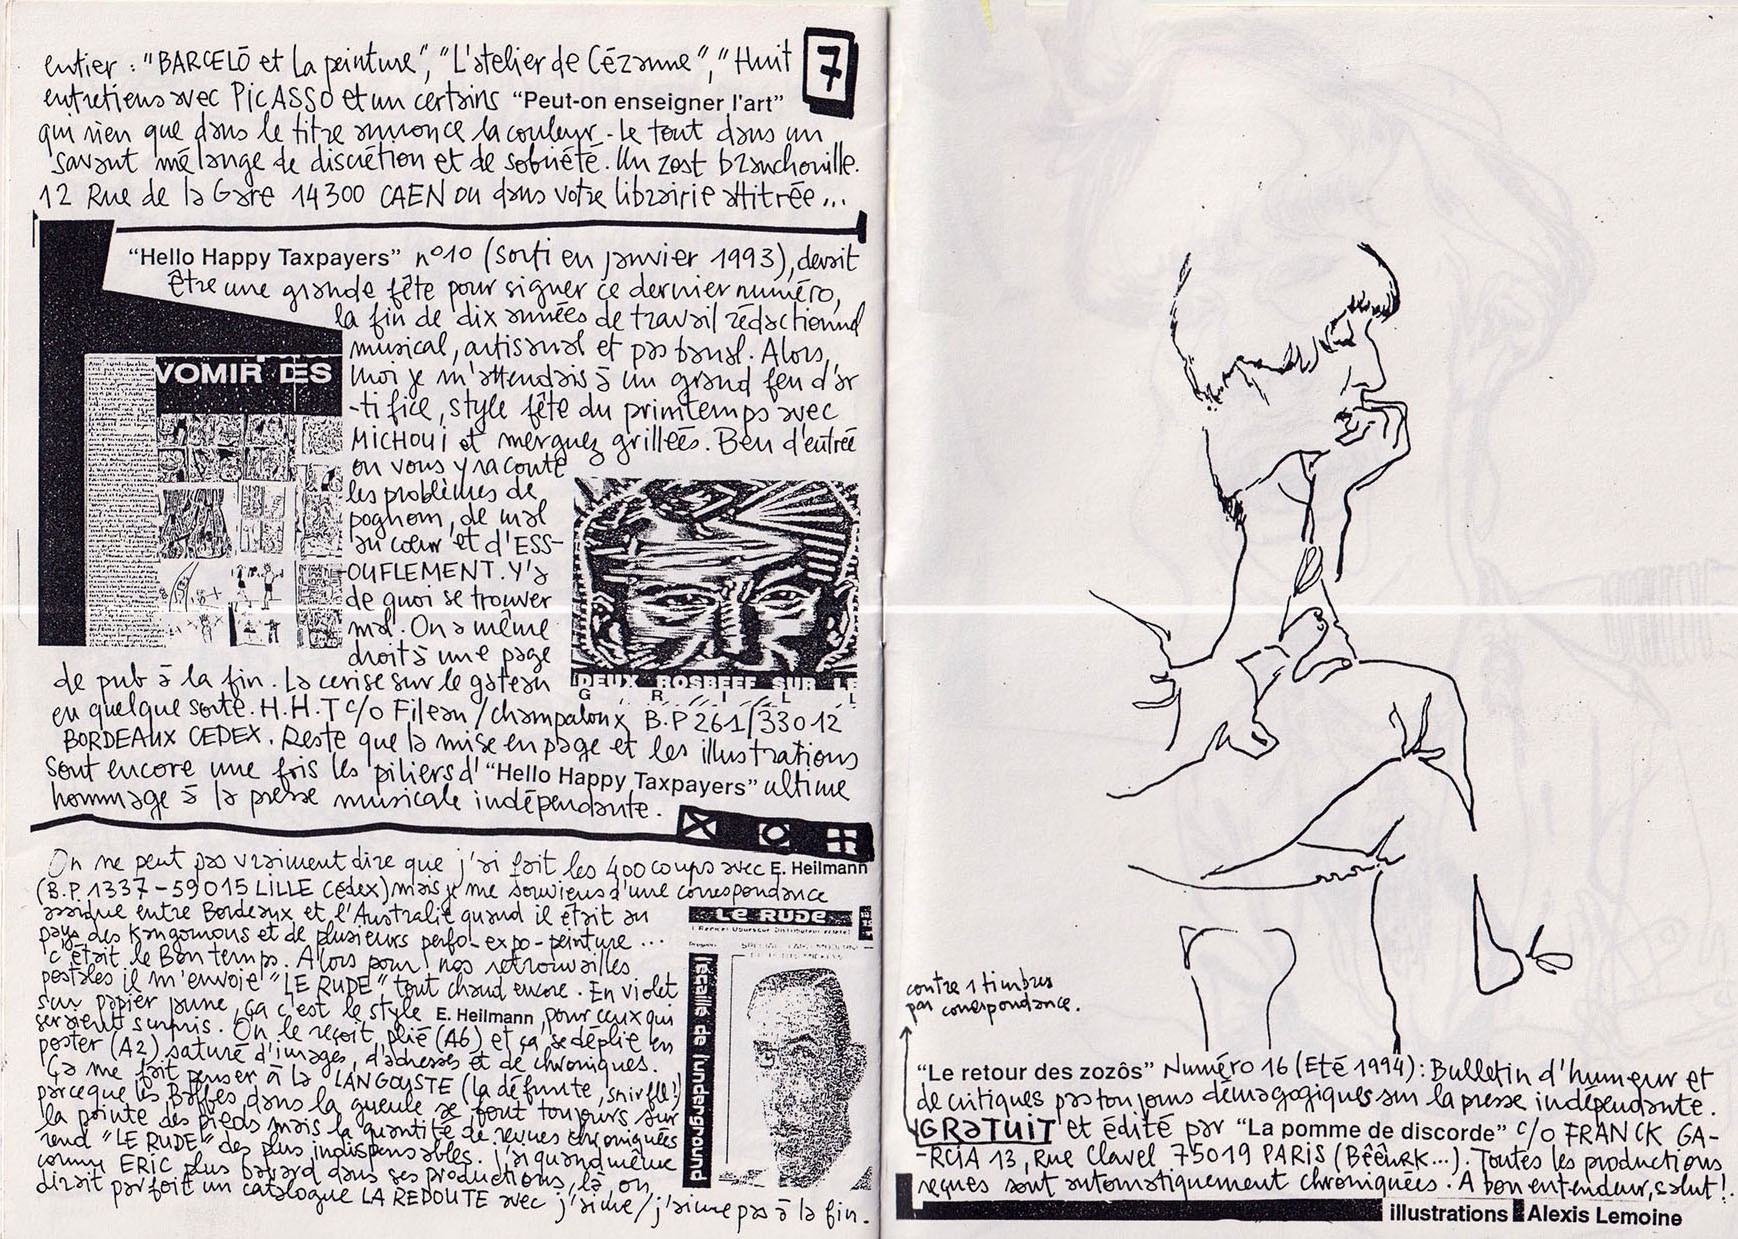 entier : "BARCELÓ et la peinture", "L'atelier de Cézanne", "Huit
7
entretiens avec PICASSO et un certains "Peut-on enseigner l'art"
qui rien que dans le titre annonce la couleur. Le tout dans un
savant mélange de discrétion et de sobriété. Un zest branchouille.
12 Rue de la Gare 14300 CAEN ou dans votre librairie attitrée...
"Hello Happy Taxpayers" n°10 (sorti en janvier 1993), devait
être une grande fête pour signer ce dernier numéro,
la fin de dix années de travail rédactionnel
musical, artisanal et pas banal. Alors,
moi je m'attendais à un grand feu d'ar
-tifice, style fête du printemps avec
MICHOUI et merguez grillées. Ben d'entrée
on vous y raconte
les problèmes de
pognom, de mal
au coeur et d'ESS-
OUFLEMENT. Y'a
de quoi se trouver
mal. On a même
droit à une page
de pub à la fin. La cerise sur le gateau
en quelque sorte. H.H.T c/o Filean/champaloux B.P 261/33012
BORDEAUX CEDEX. Reste que la mise en page et les illustrations
sont encore une fois les piliers d'"Hello Happy Taxpayers" ultime
hommage à la presse musicale indépendante.
VOMIR DES
DEUX ROSBEEF SUR LE
G R I L L
On ne peut pas vraiment dire que j'ai fait les 400 coups avec E. Heilmann
(B.P. 1337-59015 LILLE Cédex) mais je me souviens d'une correspondance
assidue entre Bordeaux et l'Australie quand il était au
pays des Kangourous et de plusieurs perfo-expo-peinture...
c'était le Bon temps. Alors pour nos retrouvailles
postales il m'envoie "LE RUDE" tout chaud encore. En violet
sur papier jaune, ça c'est le style E. Heilmann, pour ceux qui
seraient surpris. On le reçoit, plié (A6) et ça se déplie en
poster (A2) saturé d'images, d'adresses et de chroniques.
Ça me fait penser à la LANGOUSTE (la défunte, snirfle!)
parceque les Baffes dans la gueule se font toujours sur
la pointe des pieds mais la quantité de reçues chroniquées
rend "LE RUDE" des plus indispensables. J'ai quand même
connu ERIC plus bavard dans ses productions, là on
dirait parfoit un catalogue LA REDOUTE avec j'aime/j'aime pas à la fin.
LE RUDE
l'écaille de l'underground
contre 1 timbres
par correspondance.
"Le retour des zozôs" Numéro 16 (Eté 1994): Bulletin d'humeur et
de critiques pas toujours démagogiques sur la presse indépendante.
GRATUIT et édité par "La pomme de discorde" c/o FRANCK GA-
-RCIA 13, Rue Clavel 75019 PARIS (Bêêurk...). Toutes les productions
reçues sont automatiquement chroniquées. A bon entendeur, salut!.
illustrations Alexis Lemoine